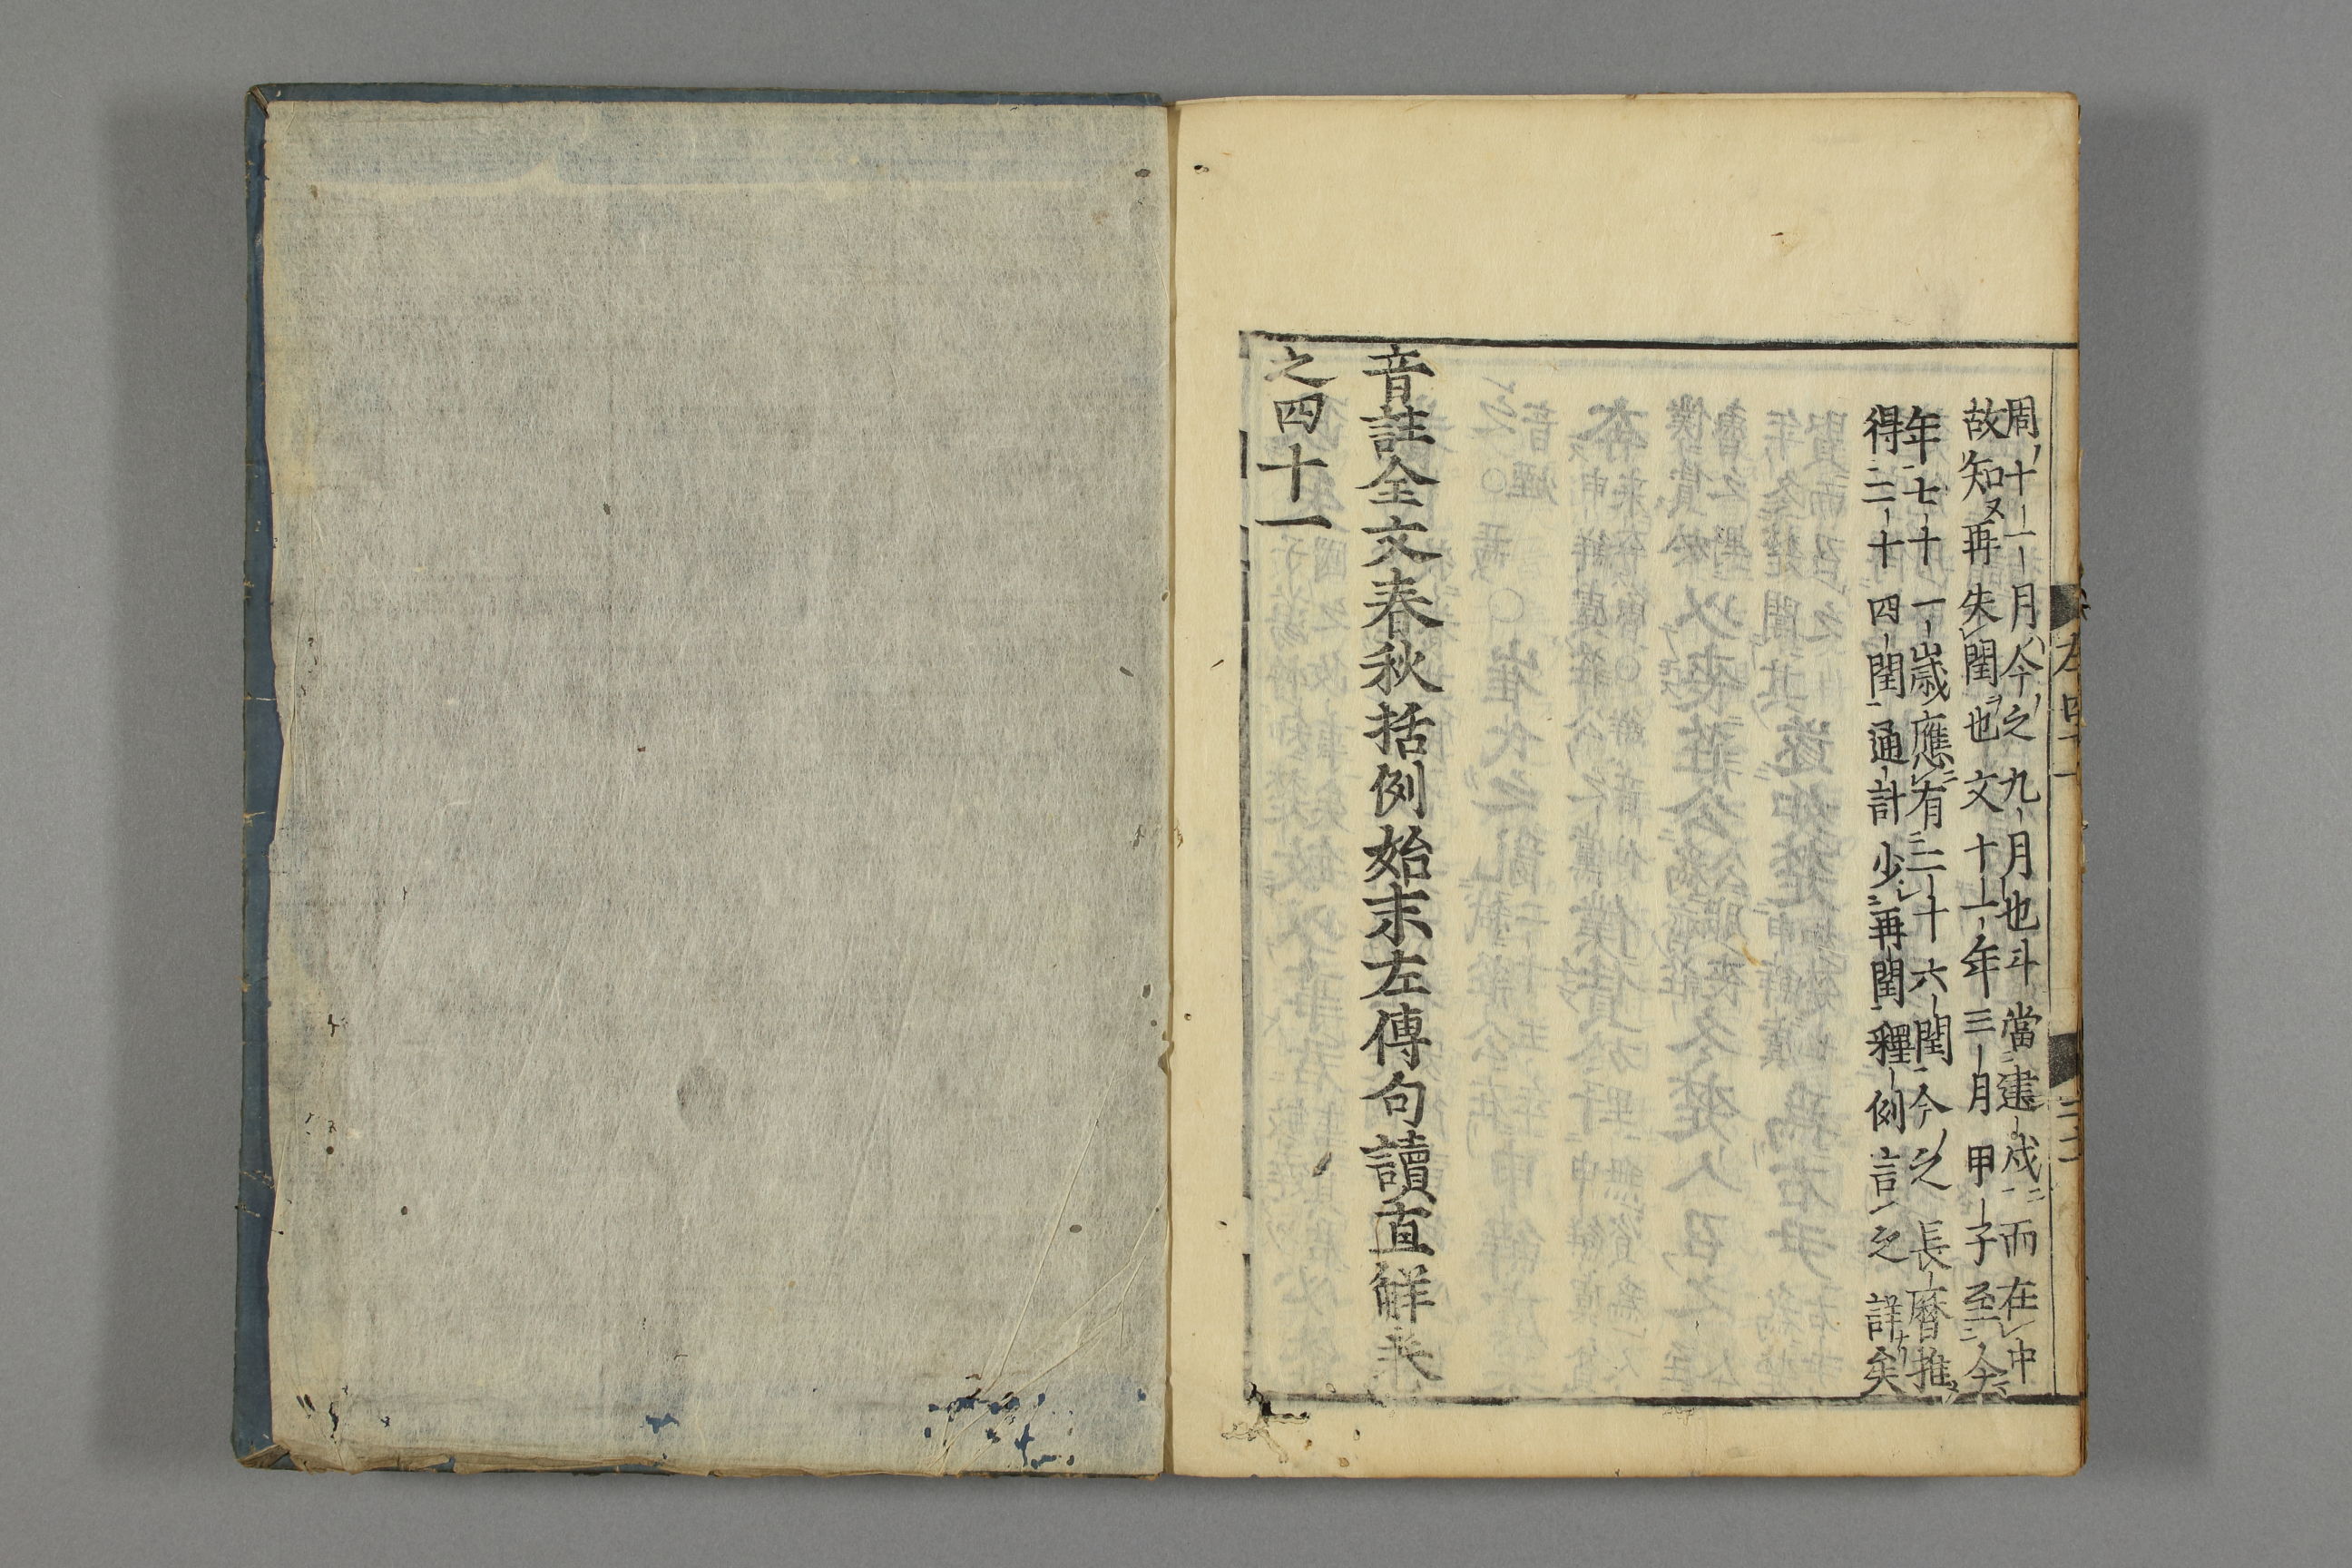 周十一月今之九月也斗當建戍而在中
故知再失閏也文十一年三月甲子至今
年七十一歳應有二十六閏今之長暦推
得二十四閏通計少再閏釋例言之詳矣
音註全文春秋括例始末左傳句讀直解卷
之四十一
左四十一